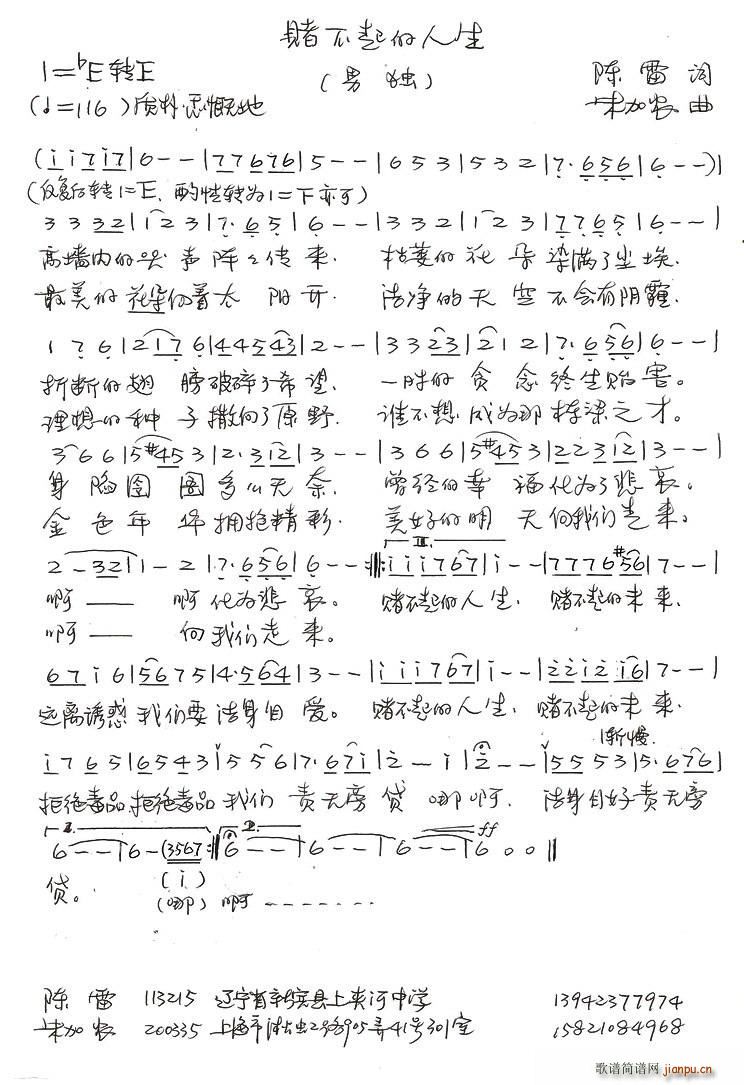 赌不起的人生
1=♭E转E
(男独)
陈雷词
(♩=116)质朴.感慨地
朱加农曲
(i i 7 i 7 | 6 - - | 7 7 6 7 6 | 5 - - | 6 5 3 | 5 3 2 | 7· 6 5 6 | 6 - -)|
(反复后转1=E,酌性转为1=下亦可)
3 3 3 2 | 1 2 3 | 7· 6 5 | 6 - - | 3 3 2 | 1 2 3 | 7 7 6 5 | 6 - - |
高墙内的哭声阵々传来. 枯萎的花朵染满了尘埃.
最美的花朵向着太阳开. 洁净的天空不会有阴霾.
1 7 6 | 2 1 7 6 | 4 4 5 4 3 | 2 - - | 3 3 2 3 | 2 1 2 | 7· 6 5 6 | 6 - - |
折断的翅膀破碎了希望. 一时的贪念终生贻害。
理想的种子撒向了原野. 谁不想成为那栋梁之才。
3 6 6 | 5 #4 5 3 | 2· 3 1 2 | 3 - - | 3 6 6 | 5 #4 5 3 | 2 2 3 1 2 | 3 - - |
身陷囹圄多么无奈. 曾经的幸福化为了悲哀。
金色年华拥抱精彩. 美好的明天向我们走来。
2 - 3 2 | 1 - 2 | 7· 6 5 6 | 6 - - :||: i i i 7 6 7 | i - - | 7 7 7 6 #5 6 | 7 - - |
啊—— 啊化为悲哀。 赌不起的人生. 赌不起的未来.
啊—— 向我们走来。
6 7 i 6 | 5 6 7 5 | 4· 5 6 4 | 3 - - | i i i 7 6 7 | i - - | 2 2 i 2 i 6 | 7 - - |
远离诱惑我们要洁身自爱。 赌不起的人生. 赌不起的未来.
渐慢.
i 7 6 5 | 6 5 4 3 | 5 5 6 | 7· 6 7 i | 2 - i | 2 - - | 5 5 5 3 | 5· 6 7 6 |
拒绝毒品拒绝毒品我们责无旁贷哪啊. 洁身自好责无旁
I. II. ff
6 - - | 6 - (3 5 6 7 :|| 6 - - | 6 - - | 6 - - | 6 0 0 ||
贷。 (i)
(哪) 啊 - - - - - - -
陈雷 113215 辽宁省新宾县上夹河中学 13942377974
朱加农 200335 上海市 905弄41号301室 15821084968
歌谱简谱网
jianpu.cn